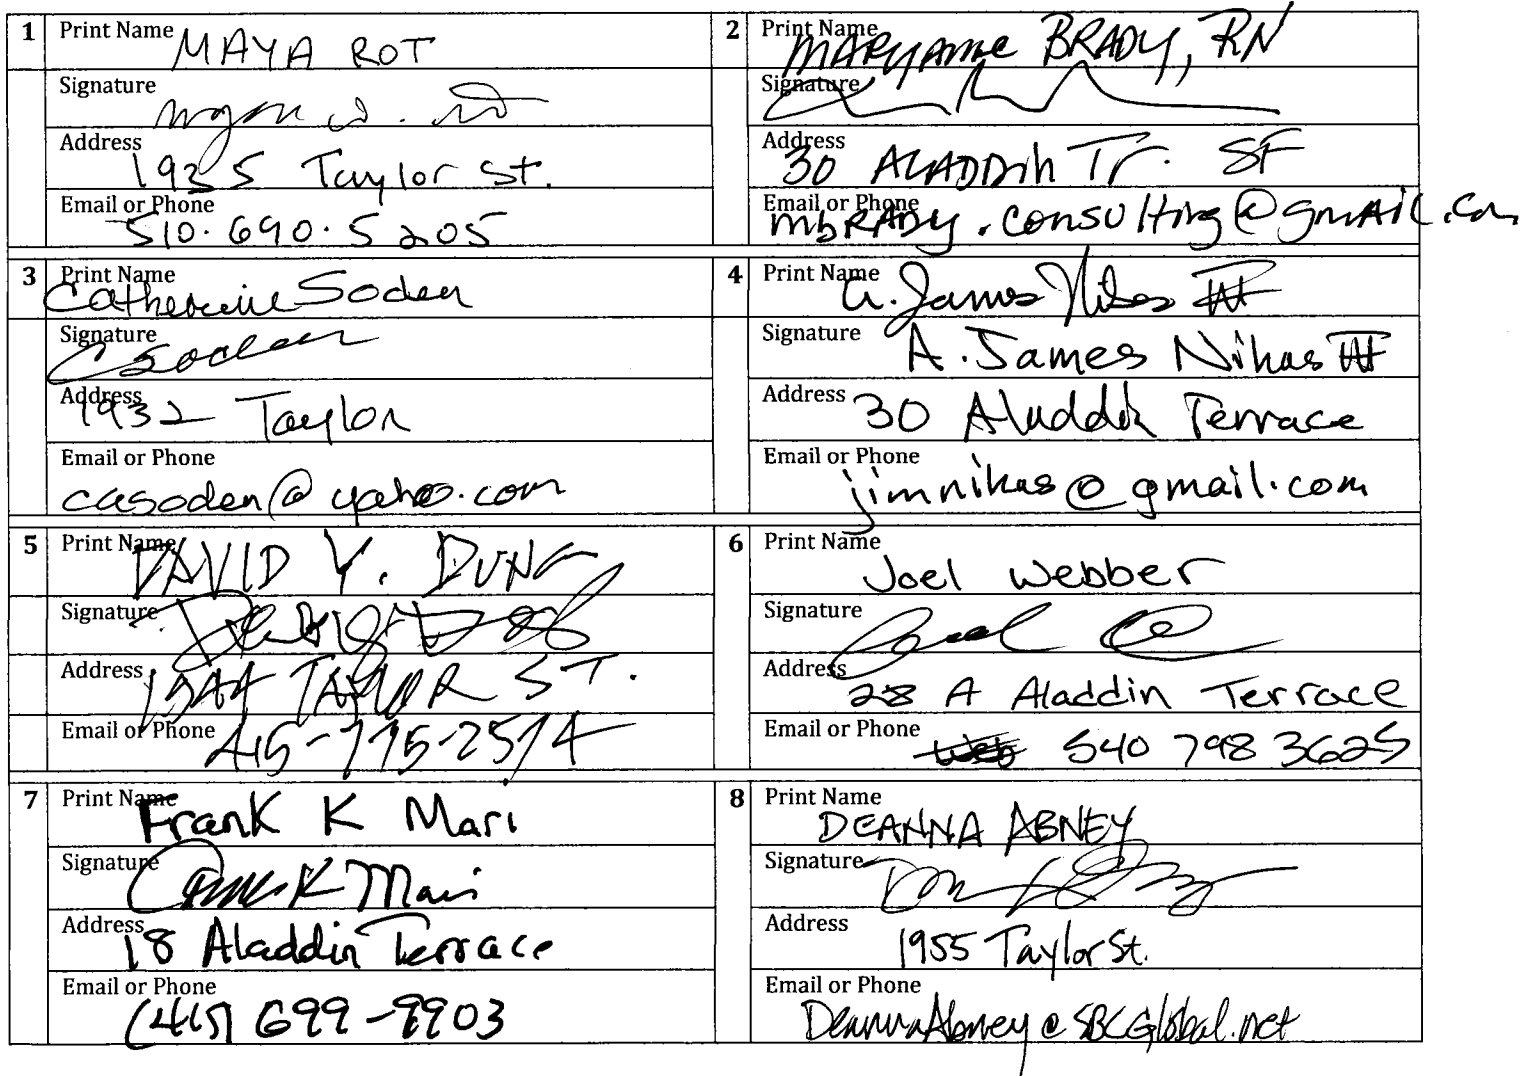 1 Print Name MAYA ROT
Signature
Address 1935 Taylor St.
Email or Phone 510.690.5205
2 Print Name MARYANNE BRADY, RN
Signature
Address 30 ALADDIN Tr. SF
Email or Phone mbRADY.consulting@gmAiL.com
3 Print Name Catherine Soden
Signature CSoden
Address 1932 Taylor
Email or Phone casoden@yahoo.com
4 Print Name A. James Nikas III
Signature A. James Nikas III
Address 30 Aladdin Terrace
Email or Phone jimnikas@gmail.com
5 Print Name DAVID Y. DUNG
Signature
Address 1944 TAYLOR ST.
Email or Phone 415-775-2574
6 Print Name Joel Webber
Signature
Address 28 A Aladdin Terrace
Email or Phone 540 798 3625
7 Print Name Frank K Mari
Signature K Mari
Address 18 Aladdin Terrace
Email or Phone (415) 699-9903
8 Print Name DEANNA ABNEY
Signature
Address 1955 Taylor St.
Email or Phone DeannaAbney@SBCGlobal.net